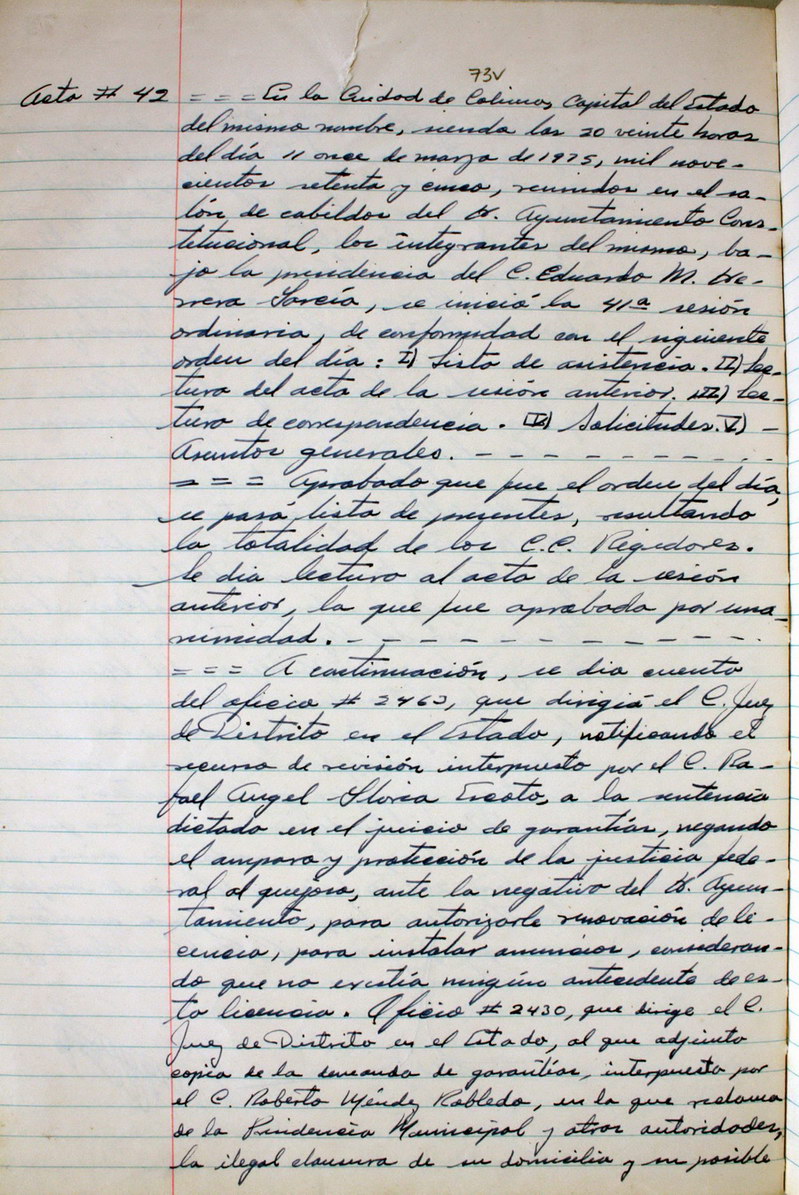 73v
Acta # 42 = = = En la Ciudad de Colima, Capital del Estado
del mismo nombre, siendo las 20 veinte horas
del día 11 once de marzo de 1975, mil nove-
cientos setenta y cinco, reunidos en el sa-
lón de cabildos del H. Ayuntamiento Cons-
titucional, los integrantes del mismo, ba-
jo la presidencia del C. Eduardo M. He-
rrera García, se inició la 41a sesión
ordinaria, de conformidad con el siguiente
orden del día: I) Lista de asistencia. II) Lec-
tura del acta de la sesión anterior. III) Lec-
tura de correspondencia. IV) Solicitudes. V) -
Asuntos generales. - - - - - - - - - -
= = = Aprobado que fue el orden del día,
se pasó lista de presentes, resultando
la totalidad de los C.C. Regidores.
Se dio lectura al acta de la sesión
anterior, la que fue aprobada por una-
nimidad. - - - - - - - - - -
= = = A continuación, se dio cuenta
del oficio # 2463, que dirigió el C. Juez
de Distrito en el Estado, notificando el
recurso de revisión interpuesto por el C. Ra-
fael Angel Llorca Escoto, a la sentencia
dictada en el juicio de garantías, negando
el amparo y protección de la justicia fede-
ral al quejoso, ante la negativa del H. Ayun-
tamiento, para autorizarle renovación de li-
cencia, para instalar anuncios, consideran-
do que no existía ningún antecedente de es-
ta licencia. Oficio # 2430, que dirige el C.
Juez de Distrito en el Estado, al que adjunta
copia de la demanda de garantías, interpuesta por
el C. Roberto Méndez Robledo, en la que reclama
de la Presidencia Municipal y otras autoridades,
la ilegal clausura de su domicilio y su posible